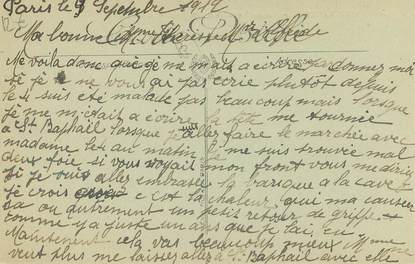 Paris le 9 Septembre 1912
Ma bonne Thérèse
Me voila donc que je me mait a écrire pardonnez moi
si je ne vous ai pas ecrie plutôt depuis
le 4 suis eté malade pas beaucoup mais lorsque
je me mettait a écrire la tete me tournée
a St Raphaël lorsque allez faire le marchée avec
madame le 4 au matin je me suis trouvée mal
deux foie si vous voyait mon front vous me diriez
si je suis allez embrasée la barique a la cave
je crois c'est la chaleur qui ma causer
sa ou autrement un petit retour de griffe
comme y a juste un ans que je lai eu
Maintenent cela vas beaucoup mieux Mme
veut plus me laissez allez a St Raphaël avec elle